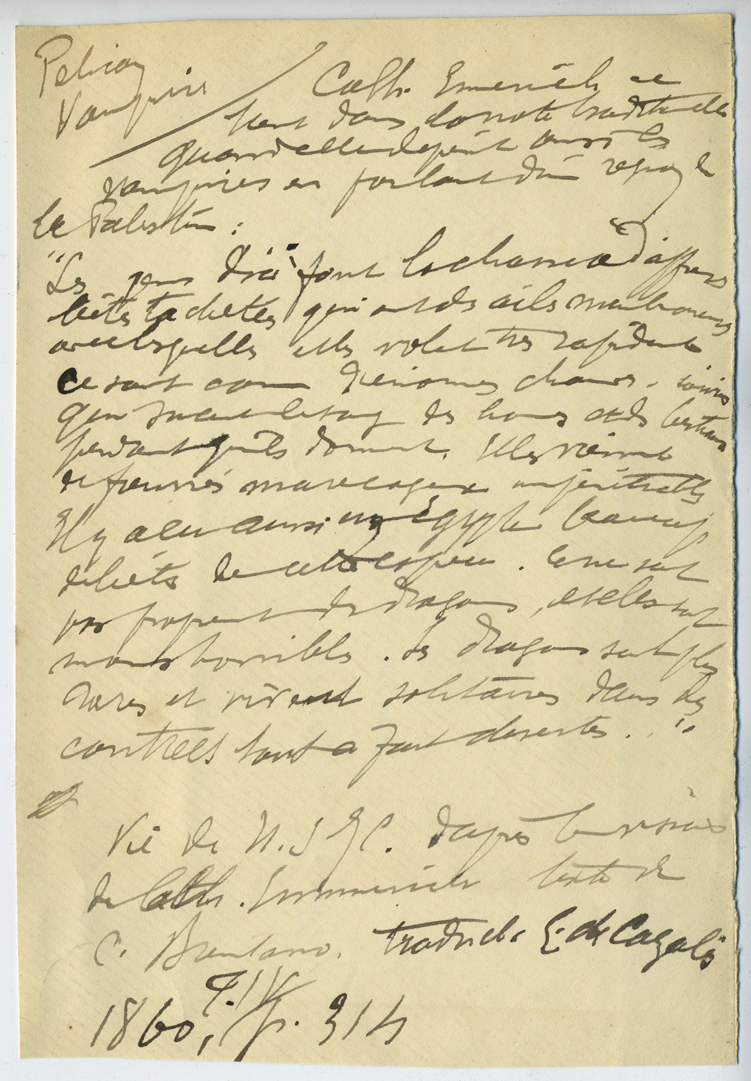 Pelican
Vampire
Cath. Emerich se
tient dans la note traditionnelle
quand elle dépeint aussi les
vampires en parlant d'un voyage
la Palestine :
"Les gens d'ici font la chasse à d'affreuses
bêtes tachetées qui ont des ailes membraneuses
avec lesquelles elles volent très rapidement
ce sont comme d'énormes chauves-souris
qui sucent le sang des hommes et des bestiaux
pendant qu'ils dorment. Elles viennent
de marécageux
Il y a eu aussi en Egypte beaucoup
de bêtes de cette espèce. Ce ne sont
pas proprement des dragons, et elles sont
moins horribles. Les dragons sont plus
rares et vivent solitaires dans des
contrées tout à fait désertes..."
Vie de N. S. J. C. d'après les visions
de Cath. Emmerich texte de
C. Brentano. traduct. E. de Cazalès
1860, T. IV p. 314